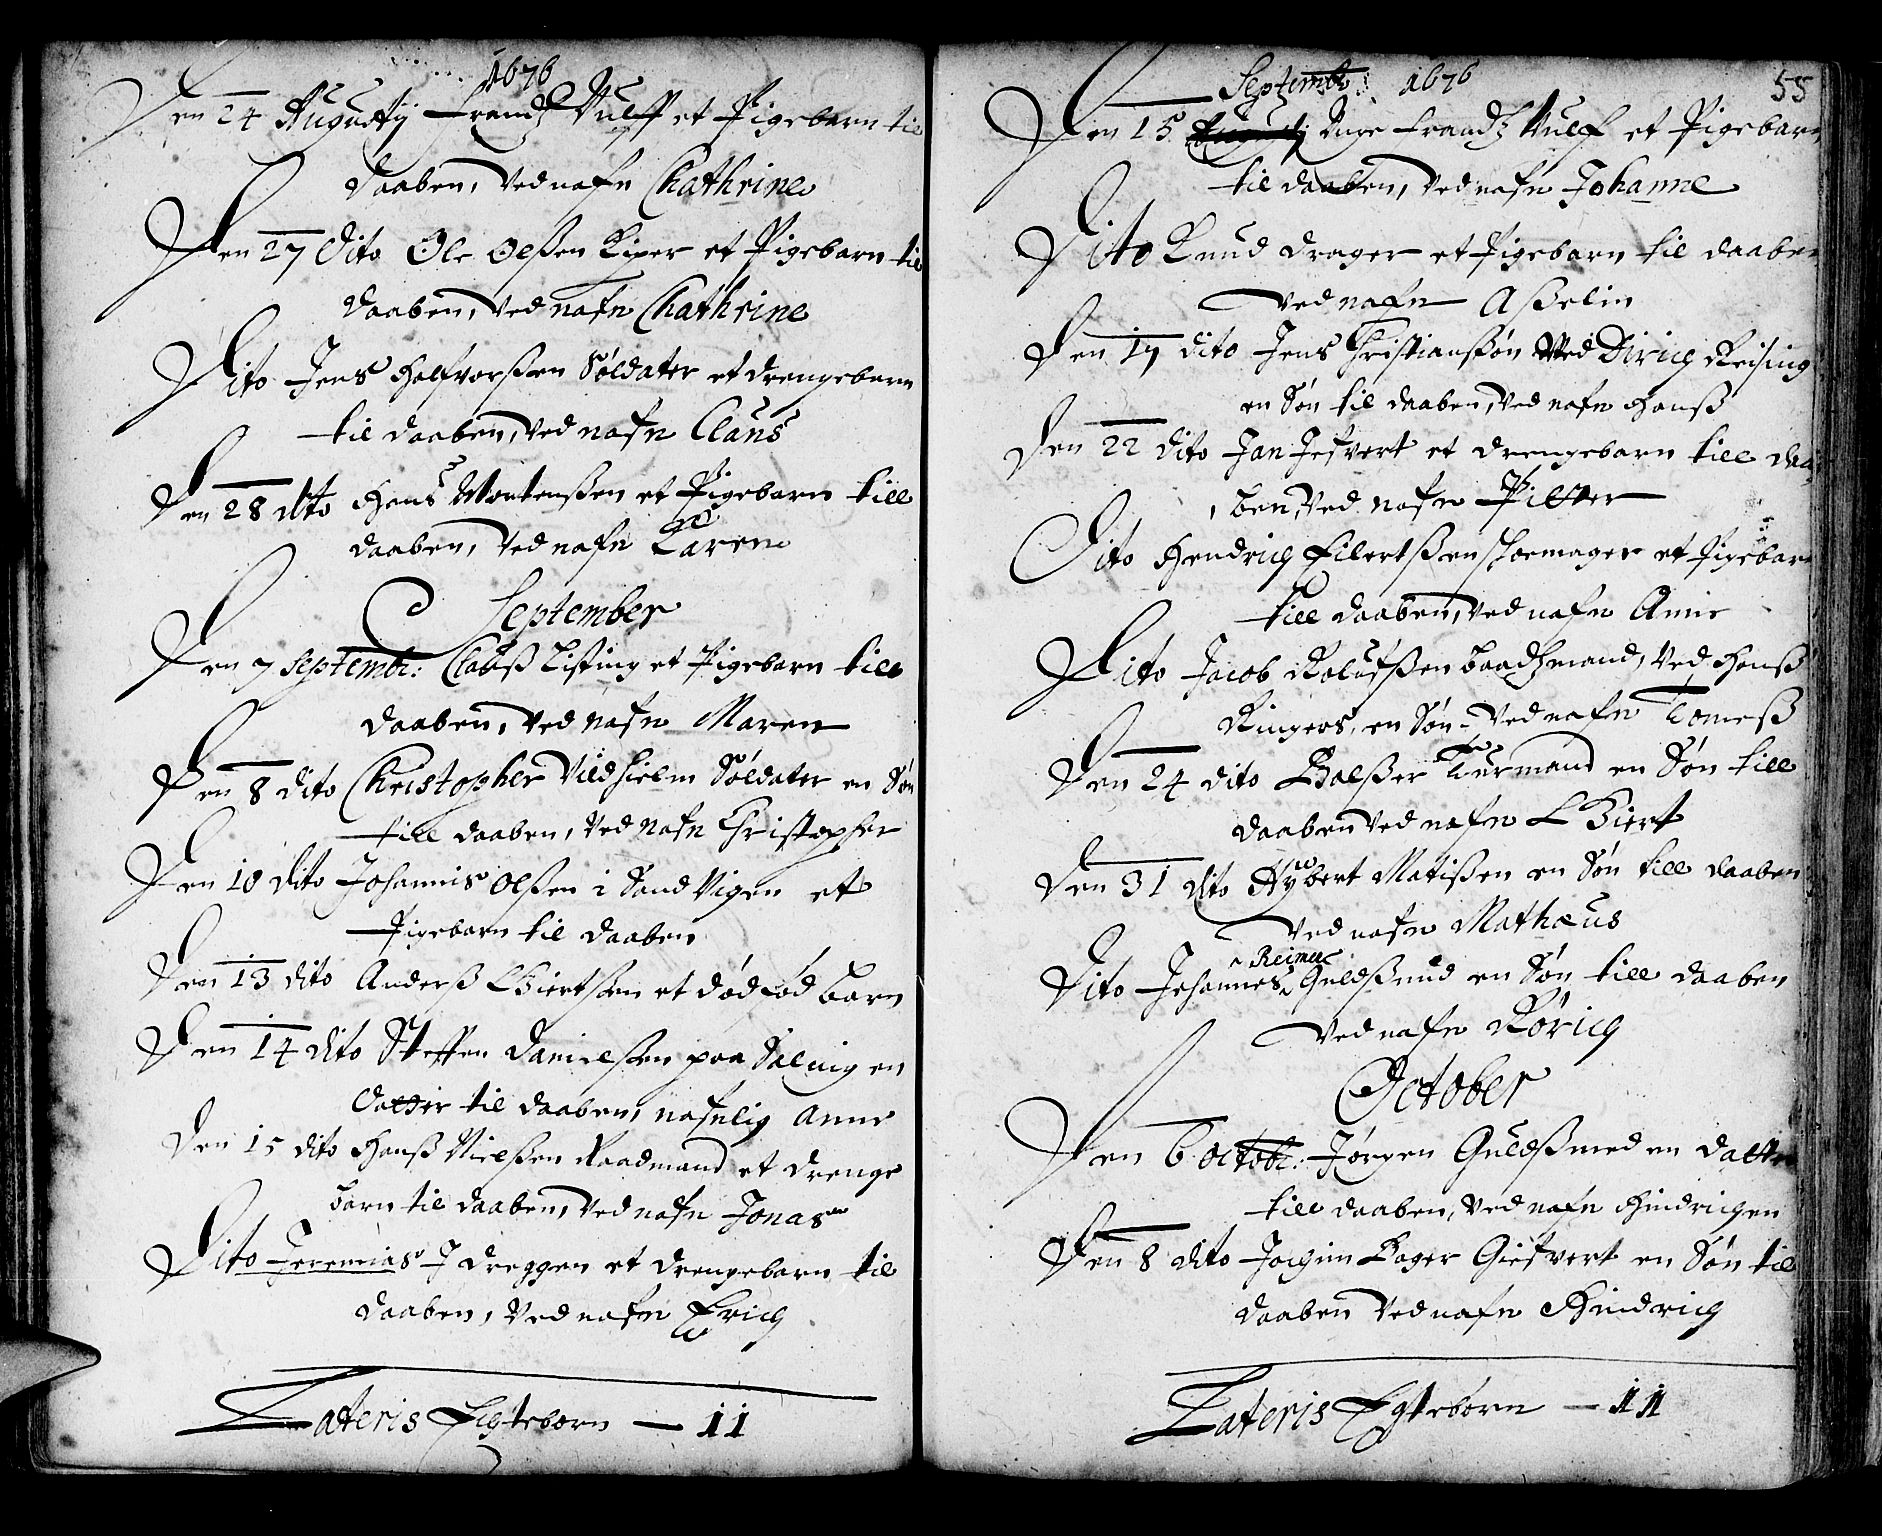 1676
Den 24 Augustij Frandz Wulff et Pigebarn til
daaben, Ved nafn Chathrine
Den 27 Dito Ole Olßen Kiper et Pigebarn til
daaben, Ved nafn Chathrine
Dito Jens Halfvorßen Soldater et drengebarn
til daaben, Ved nafn Claus
Den 28 dito Hans Mortenßen et Pigebarn till
daaben, Ved nafn Karen
September
Den 7 Septembr: Clauß Listing et Pigebarn till
daaben, Ved nafn Maren
Den 8 dito Christopher Vildhielm Soldater en Søn
till daaben, Ved Nafn Christopher
Den 10 dito Johannis Olßen i Sand Vigen et
Pigebarn til daaben
Den 13 dito Anderß Giertsen et død fød barn
Den 14 dito Steffen Danielßen paa Salnig en
datter til daaben, nafnlig Anne
Den 15 dito Hanß Nielßen Raadmand et drenge
barn til daaben, Ved nafn Jonas
Dito Jeremias J dreggen et drengebarn til
daaben, Ved nafn Erich
Lateris Egteborn — 11
Septembr: 1676
55
Den 15 Augustij Unge Frandz Wulf et Pigebarn
til daaben, Ved nafn Johanne
Dito Knud drager et Pigebarn til daaben
Ved nafn Aßelin
Den 17 dito Jens Christianßøn Ved Dirich Reising
en Søn til daaben, Ved nafn Hanß
Den 22 dito Jan Jefvert et drengebarn till daa
ben, Ved nafn Pitter
Dito Hendrich Eilertßen skoemager et Pigebarn
till daaben, Ved nafn Anne
Dito Jacob Rolufßen baadzmand, Ved Hanß
Ringers, en Søn Ved nafn Tomeß
Den 24 dito Balßer Kurmand en Søn till
daaben Ved nafn Giert
Den 31 dito Hybert Matißen en Søn till daaben
Ved nafn Mathæus
Reimer
Dito Johannes Guldßmid en Søn till daaben
Ved nafn Rørich
October
Den 6 octobr: Jørgen Guldßmed en datter
till daaben, Ved nafn Hindrichen
Den 8 dito Jochim Bager Giefvert en Søn til
daaben Ved nafn Hindrich
Lateris Egteborn — 11